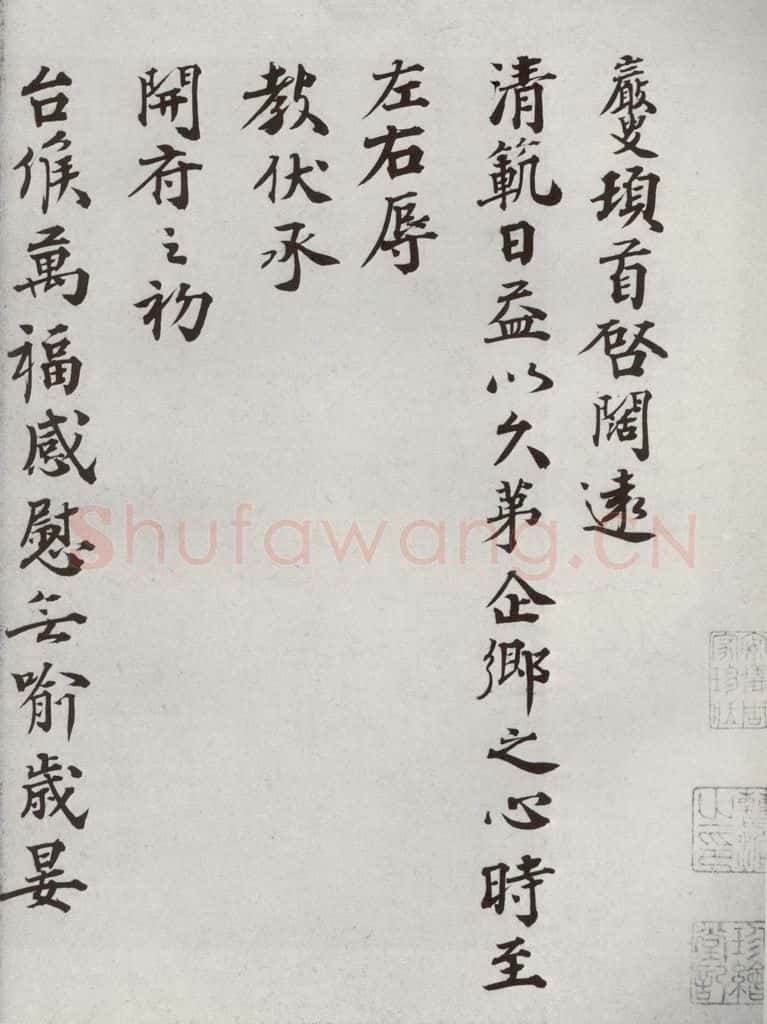 巖叟頊首啓闊遠
清範日益以久第企鄉之心時至
左右辱
教伏承
開府之初
台候萬福感慰無喻歲晏
Shufawang.CN